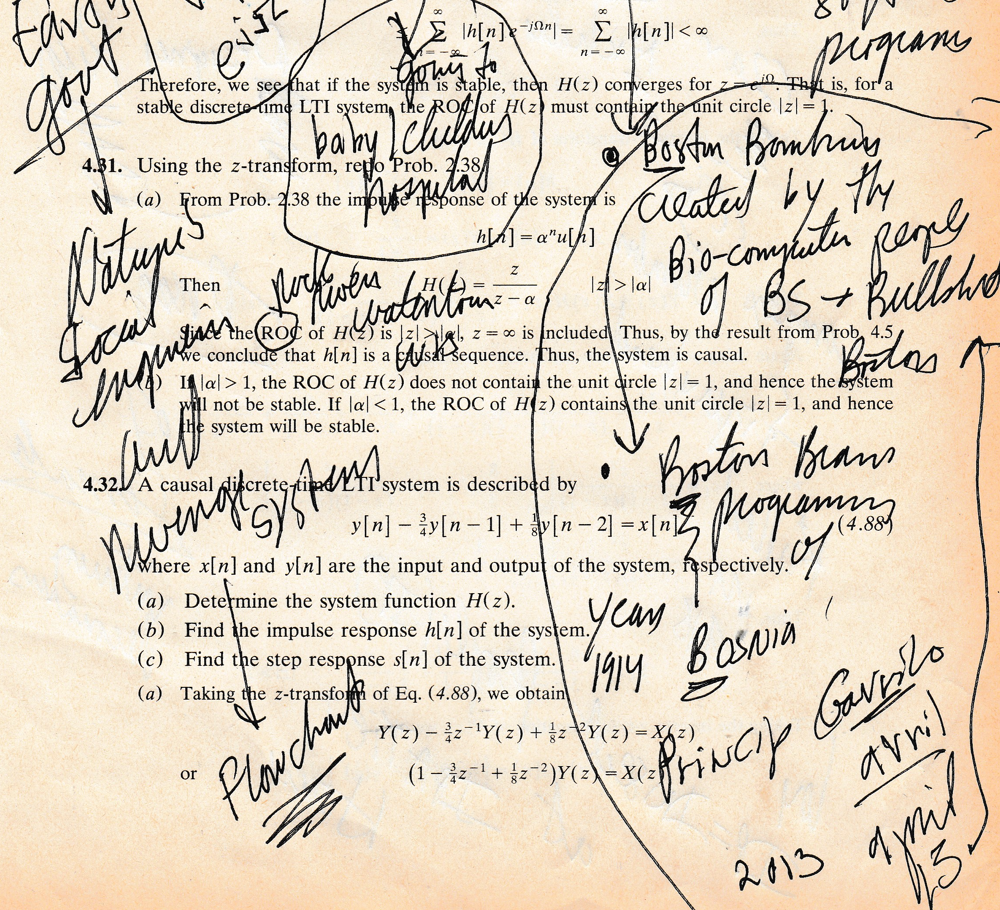 Early
govt
exist
programs
∑ |h[n]e^{-jΩn}| = ∑ |h[n]| < ∞
n=-∞ n=-∞
going to
baby / childrens
hospital
Therefore, we see that if the system is stable, then H(z) converges for z = e^{jΩ}. That is, for a
stable discrete-time LTI system, the ROC of H(z) must contain the unit circle |z| = 1.
4.31. Using the z-transform, redo Prob. 2.38.
(a) From Prob. 2.38 the impulse response of the system is
h[n] = α^n u[n]
Then H(z) = z/(z − α) |z| > |α|
Since the ROC of H(z) is |z| > |α|, z = ∞ is included. Thus, by the result from Prob. 4.5
we conclude that h[n] is a causal sequence. Thus, the system is causal.
(b) If |α| > 1, the ROC of H(z) does not contain the unit circle |z| = 1, and hence the system
will not be stable. If |α| < 1, the ROC of H(z) contains the unit circle |z| = 1, and hence
the system will be stable.
Natures
Social
and
revenge
systems
Flowchart
Rivers
watertown
Boston Bombing
created by the
Bio-computer people
of BS → Bullshit
Boston Beans
programming
of
years
1914 Bosnia
Princip Gavrilo
avril
april
2013
4.32. A causal discrete-time LTI system is described by
y[n] − ¾y[n − 1] + ⅛y[n − 2] = x[n] (4.88)
where x[n] and y[n] are the input and output of the system, respectively.
(a) Determine the system function H(z).
(b) Find the impulse response h[n] of the system.
(c) Find the step response s[n] of the system.
(a) Taking the z-transform of Eq. (4.88), we obtain
Y(z) − ¾z^{-1}Y(z) + ⅛z^{-2}Y(z) = X(z)
or (1 − ¾z^{-1} + ⅛z^{-2})Y(z) = X(z